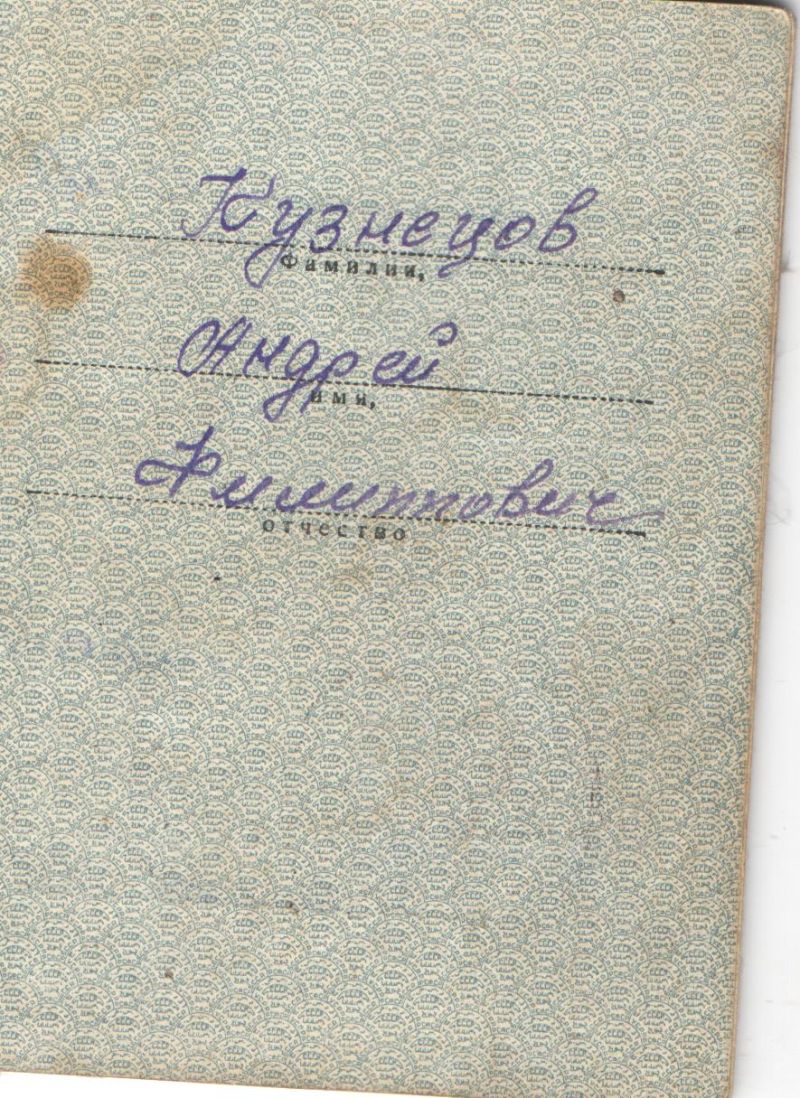 Кузнецов
Фамилии,
Андрей
имя,
Филиппович
отчество